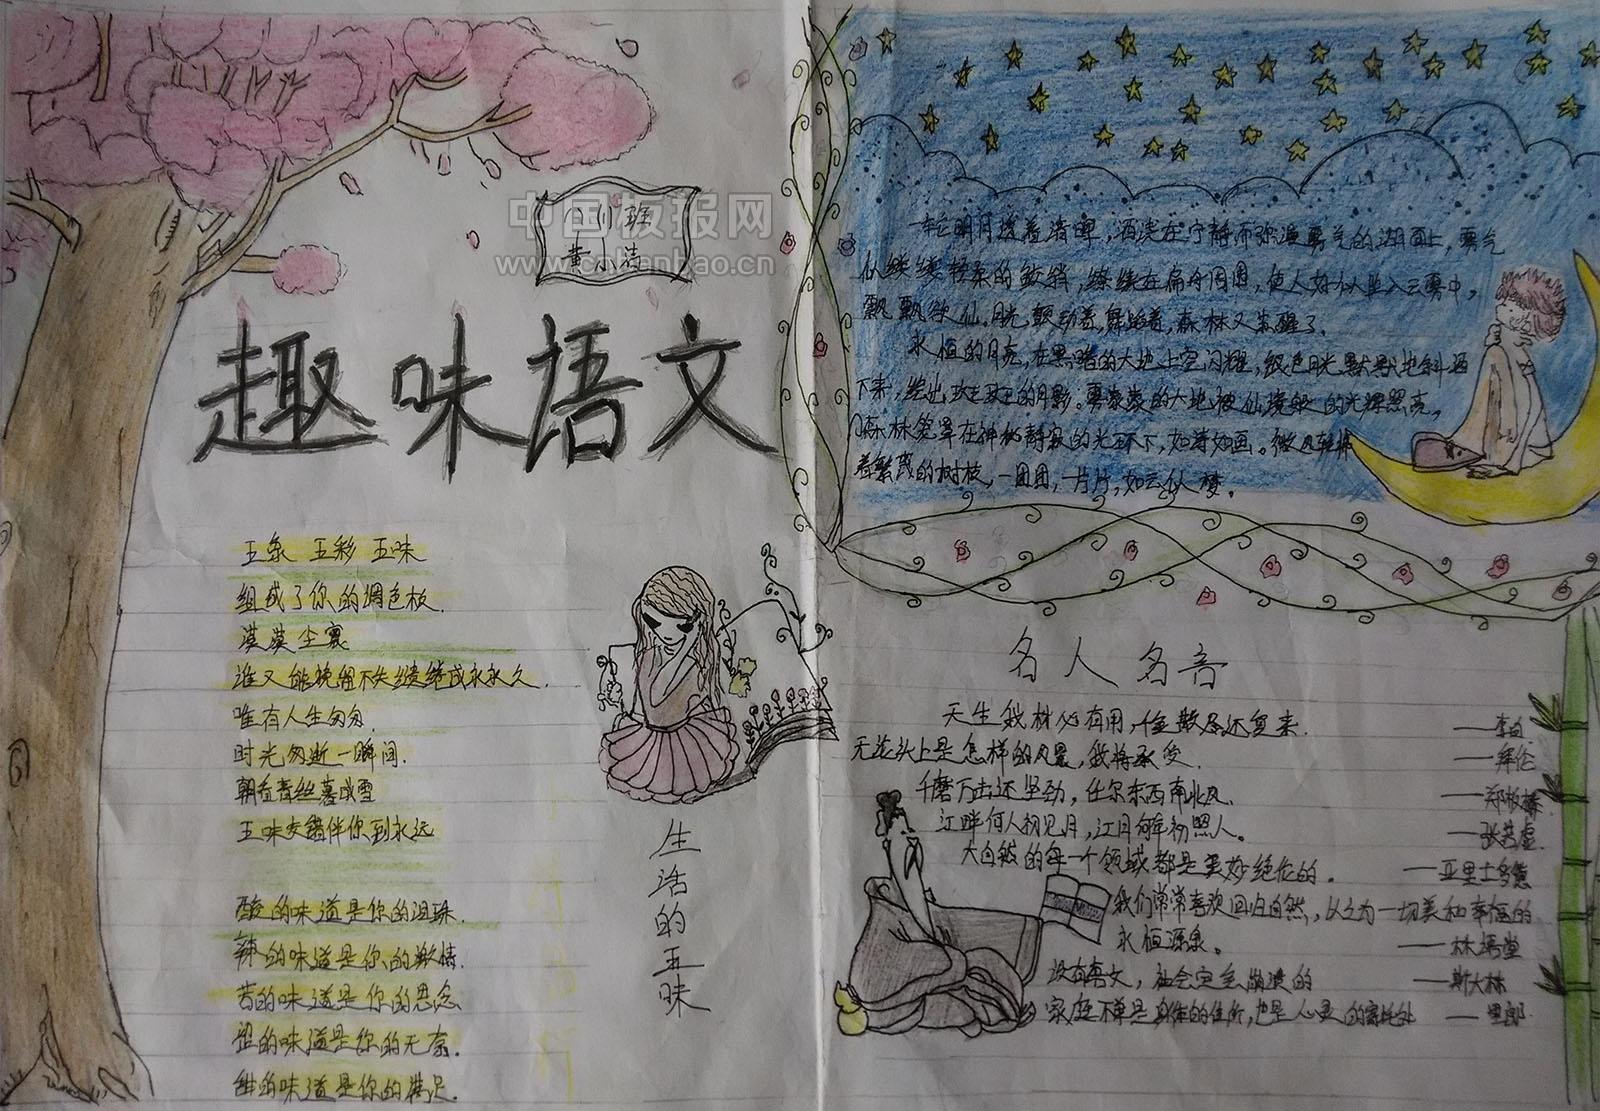 中国板报网
www.cnbanbao.cn
趣味语文
五彩 五味
组成了你的调色板.
漠漠尘寰
谁又能挽留不失缱绻成永永久.
唯有人生匆匆
时光匆逝一瞬间.
朝看青丝暮成雪
五味交错伴你到永远
酸的味道是你的泪珠.
辣的味道是你的激情.
苦的味道是你的思念
涩的味道是你的无奈.
的味道是你的满足.
生活的五味
一轮明月透着清晖，洒浇在宁静而弥漫雾气的湖面上，雾气
似缕缕轻柔的 缭绕在扁舟周围，使人好似坐入云雾中，
飘飘欲仙。月光颤动着，舞蹈着，森林又苏醒了.
永恒的月亮，在黑暗的大地上空闪耀，银色月光默默地斜洒
下来，绘出斑斑的月影。雾蒙蒙的大地被仙境般的光辉照亮，
森林笼罩在神秘静寂的光环下，如诗如画。微风轻拂
着繁茂的树枝，一团团，一片片，如云似梦。
名人名言
天生我材必有用，千金散尽还复来. ——李白
无论头上是怎样的风景，我将承受. ——拜伦
千磨万击还坚劲，任尔东西南北风. ——郑板桥
江畔何人初见月，江月何年初照人。 ——张若虚
大自然的每一个领域都是美妙绝伦的. ——亚里士多德
我们常常喜欢回归自然，以之为一切美和幸福的
永恒源泉。 ——林语堂
没有 社会定会崩溃的 ——斯大林
家庭不单是身体的住所，也是心灵的寄托处